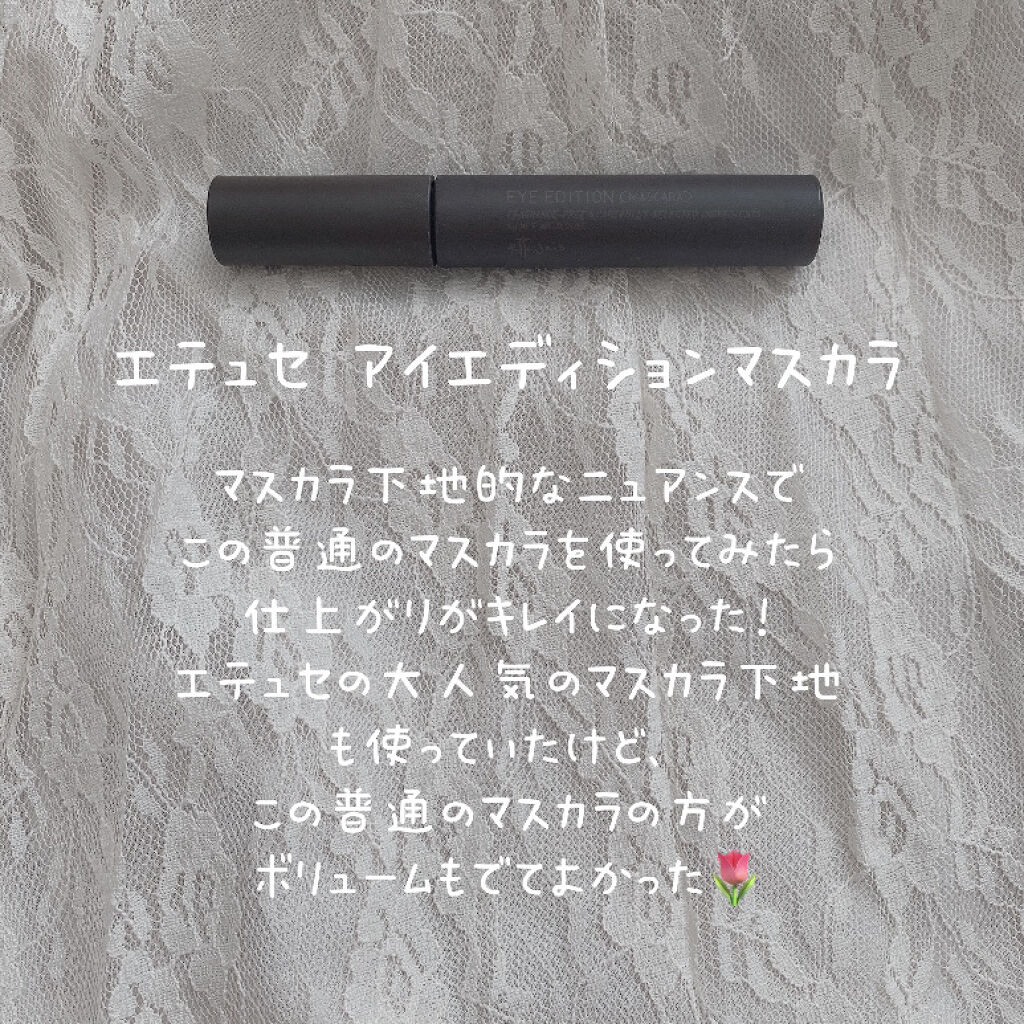 EYE EDITION (MASCARA)
ettusais
エテュセ アイエディションマスカラ
マスカラ下地的なニュアンスで
この普通のマスカラを使ってみたら
仕上がりがキレイになった!
エテュセの大人気のマスカラ下地
も使っていたけど、
この普通のマスカラの方が
ボリュームもでてよかった🌷